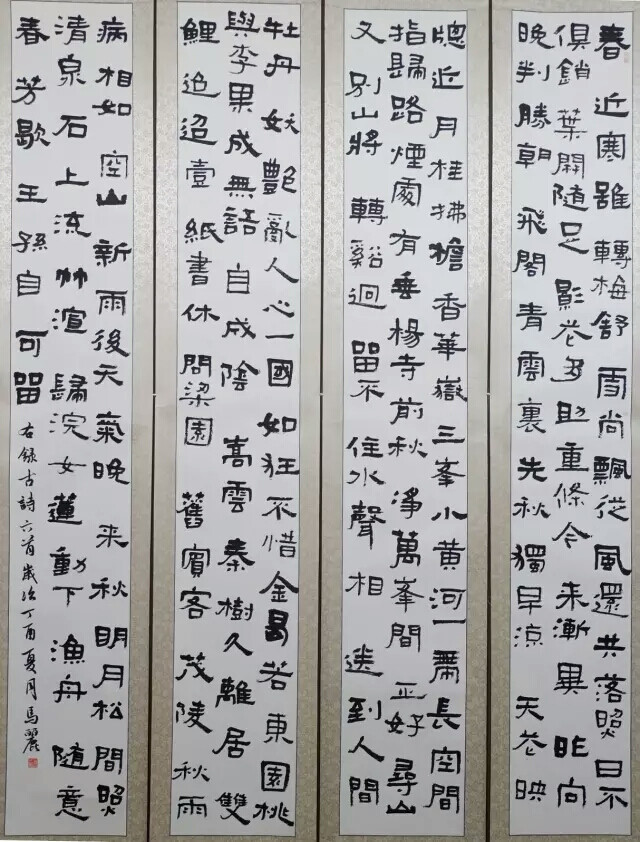 春近寒雖轉梅舒雪尚飄從風還共落照日不
俱銷葉開隨足影花多助重條今來漸異昨向
晚判勝朝飛閣青雲裏先秋獨早涼天花映
牕近月桂拂檐香華嶽三峯小黃河一帶長空間
指歸路煙處有垂楊寺前秋淨萬峯間正好尋山
又別山將轉谿迴留不住水聲相送到人間
牡丹妖艷亂人心一國如狂不惜金曷若東園桃
與李果成無語自成陰嵩雲秦樹久離居雙
鯉迢迢壹紙書休問梁園舊賓客茂陵秋雨
病相如空山新雨後天氣晚來秋明月松間照
清泉石上流竹渲歸浣女蓮動下漁舟隨意
春芳歇王孫自可留
右錄古詩六首歲次丁酉夏月馬麗